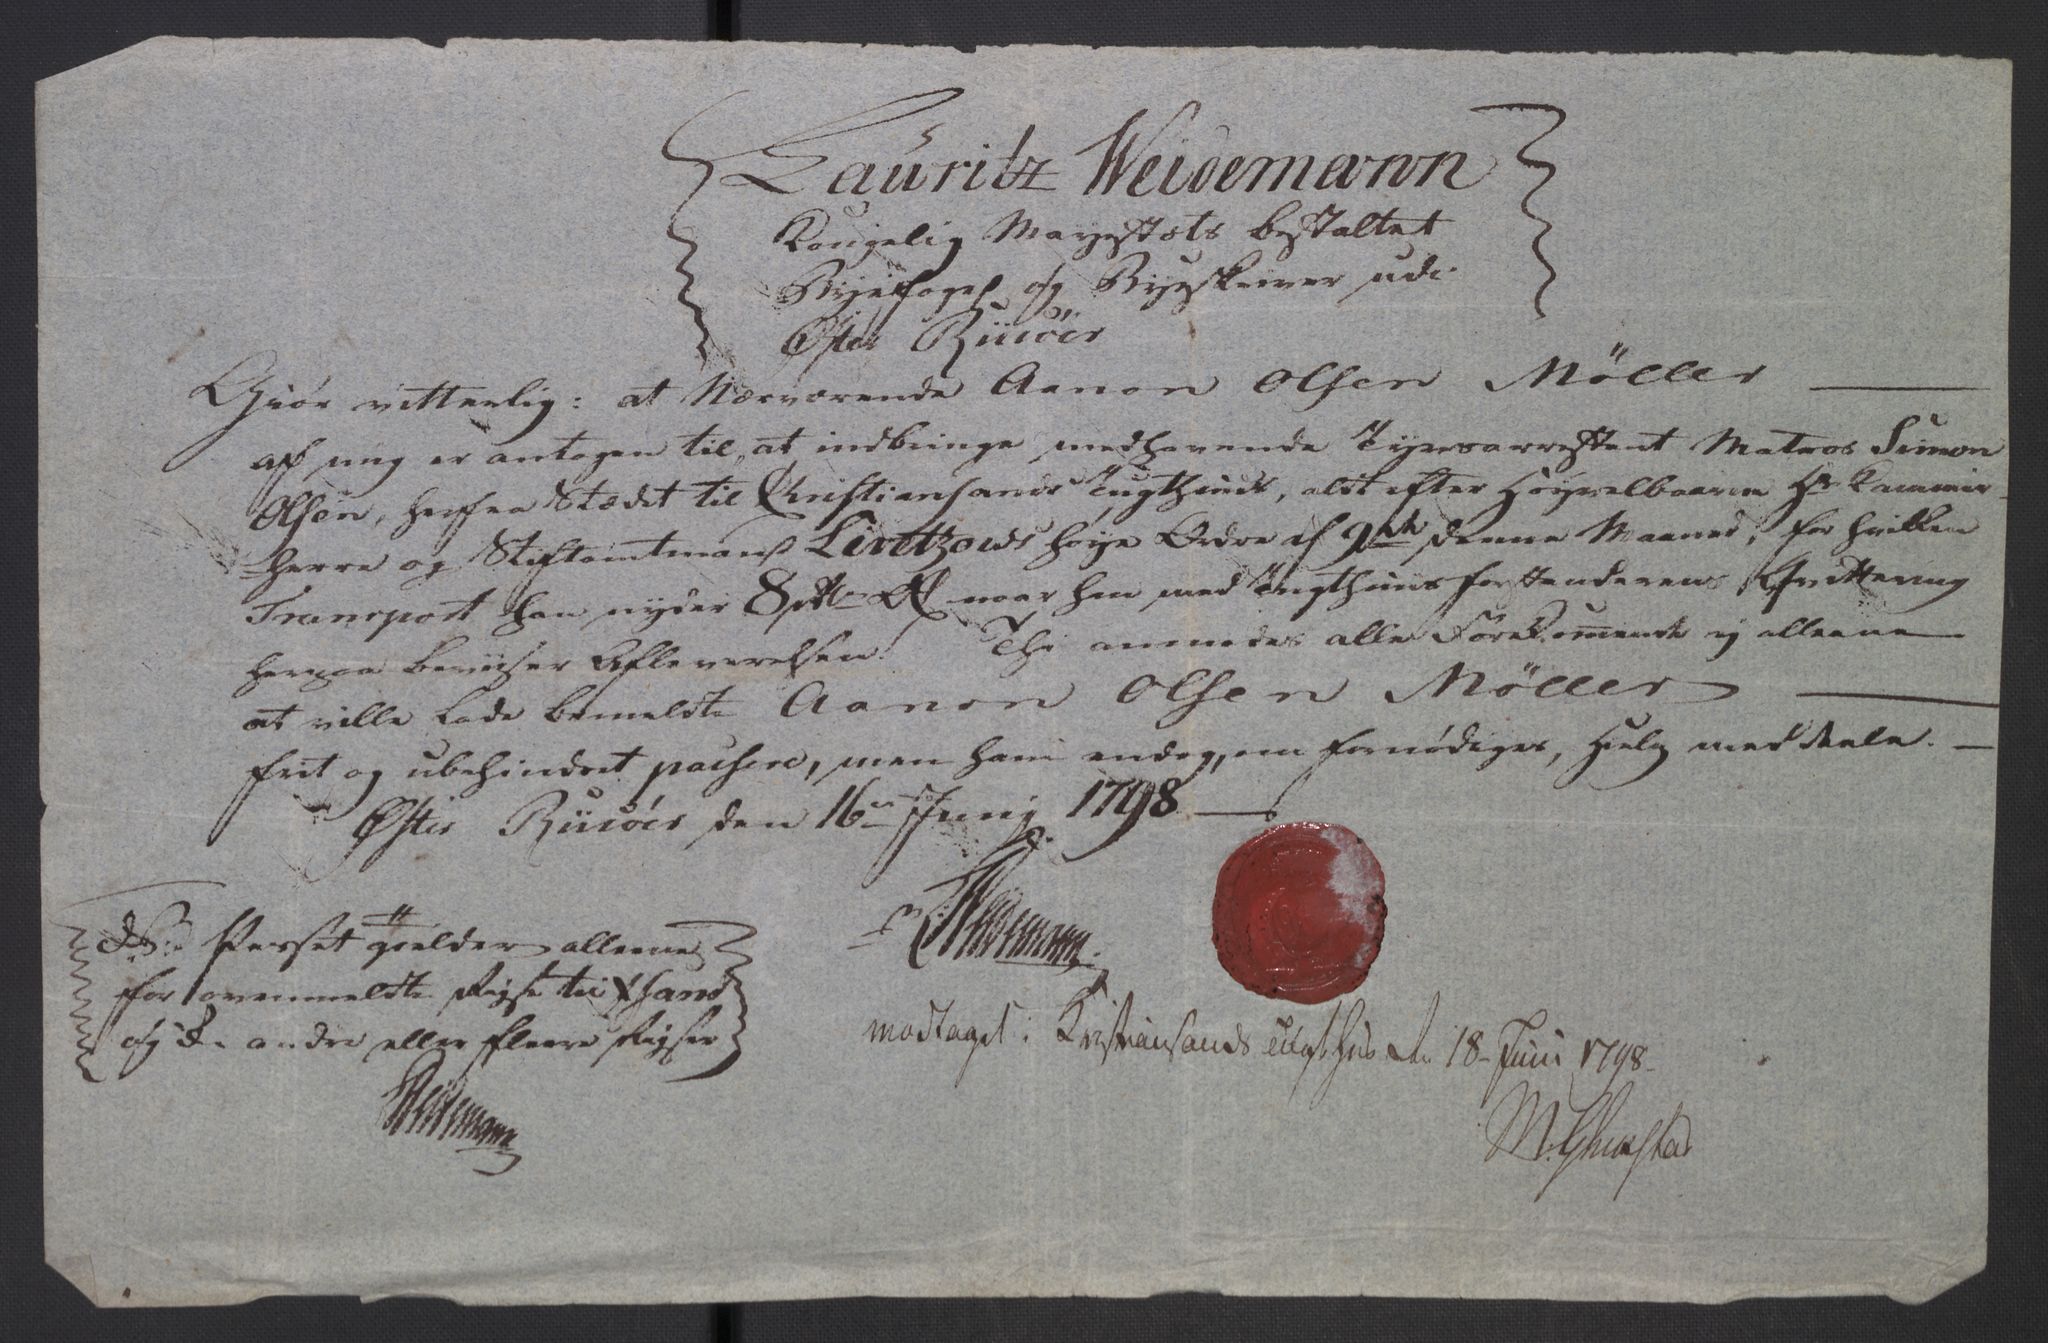 Lauritz Weidemann
Kongelig Mayestæts bestaltet
Byefoged og Byeskriver udi
Øster Riisöer
Giör vitterlig: at Nærværende Aanon Olsen Möller
af mig er antagen til, at indbringe medhavende Tyvsarrestant Matros Simon
Olsen, herfra Stædet til Christiansands Tugthuus, alt efter Høyvelbaarne Hr Kammer-
herre og Stiftamtmand Levetzows høye Ordre af 9de denne Maaned, for hvilken
Transport han nyder 8 naar han med Tugthuusforstanderens Qvittering
herpaa beviiser Afleverelsen. Thi anmodes alle Forekommende ey alleene
at ville lade bemeldte Aanon Olsen Möller
frit og ubehindret passere, men ham endog, om fornødiges, Hielp meddeele.
Øster Riisöer den 16de Juny 1798
Weidemann
NB: Passet gielder alleene
for ovenmeldte Reyse til Xsand
og ey andre eller fleere Reyser
Weidemann
modtaget i Kristiansands tugthus den 18 Juni 1798